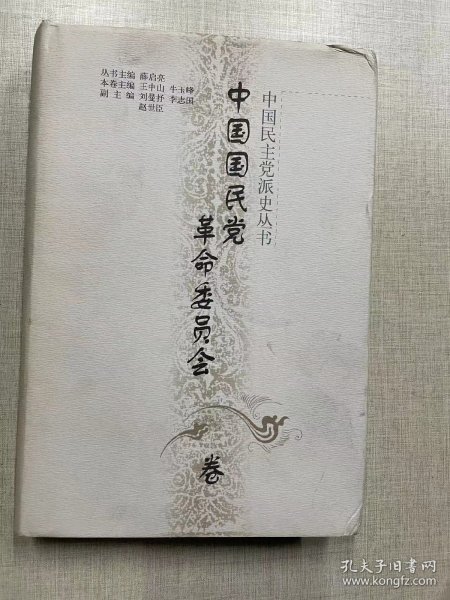 丛书主编 薛启亮
本卷主编 王中山 牛玉峰
副主编 刘曼抒 李志国
赵世臣
中国民主党派史丛书
中国国民党
革命委员会
卷
孔夫子旧书网
www.kongfz.com